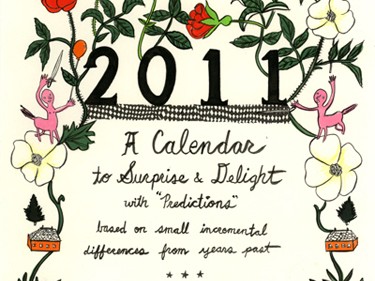 2011
A Calendar
to Surprise & Delight
with "Predictions"
based on small incremental
differences from years past
* * *